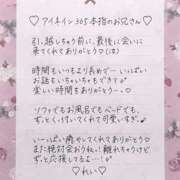 ♡アイキイン365本指のお兄さん♡
引っ越しちゃう前に、最後に会いに
来てくれてありがとう♡(泣)
時間もいつもより長めで…いっぱい
お話もいちゃいちゃもできて
楽しい時間をありがとう…
ソファでもお風呂でもベッドでも、
ずっとくっ付いてくれて可愛いすぎ♪
いっぱい癒やしてくれてありがとう♡
また絶対会おうね!離れちゃうけど
ずっと応援してるよ…!
♡れい♡